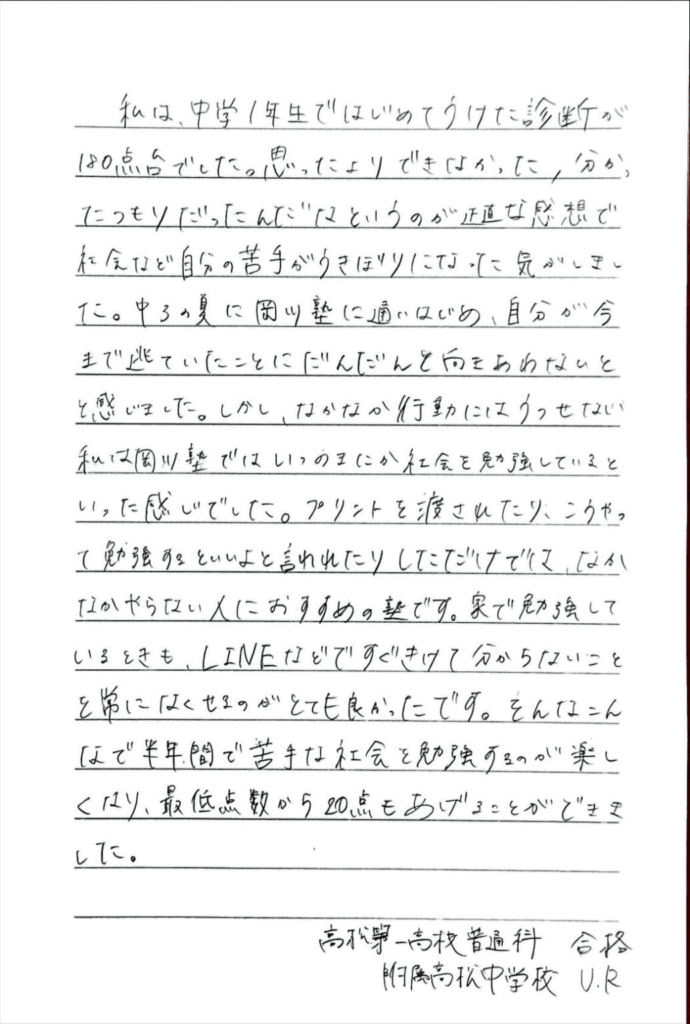 私は、中学1年生ではじめてうけた診断が
180点台でした。思ったよりできなかった、分かっ
たつもりだったんだなというのが正直な感想で
社会など自分の苦手がうきぼりになった気がしまし
た。中3の夏に岡川塾に通いはじめ、自分が今
まで逃ていたことにだんだんと向きあわないと
と感じました。しかし、なかなか行動にはうつせない
私は岡川塾ではいつのまにか社会を勉強していると
いった感じでした。プリントを渡されたり、こうやっ
て勉強するといいよと言われたりしただけでは、なか
なかやらない人におすすめの塾です。家で勉強して
いるときも、LINEなどですぐきけて分からないこと
を常になくせるのがとても良かったです。そんなこん
なで半年間で苦手な社会を勉強するのが楽し
くなり、最低点数から20点もあげることができま
した。
高松第一高校普通科 合格
附属高松中学校 U.R